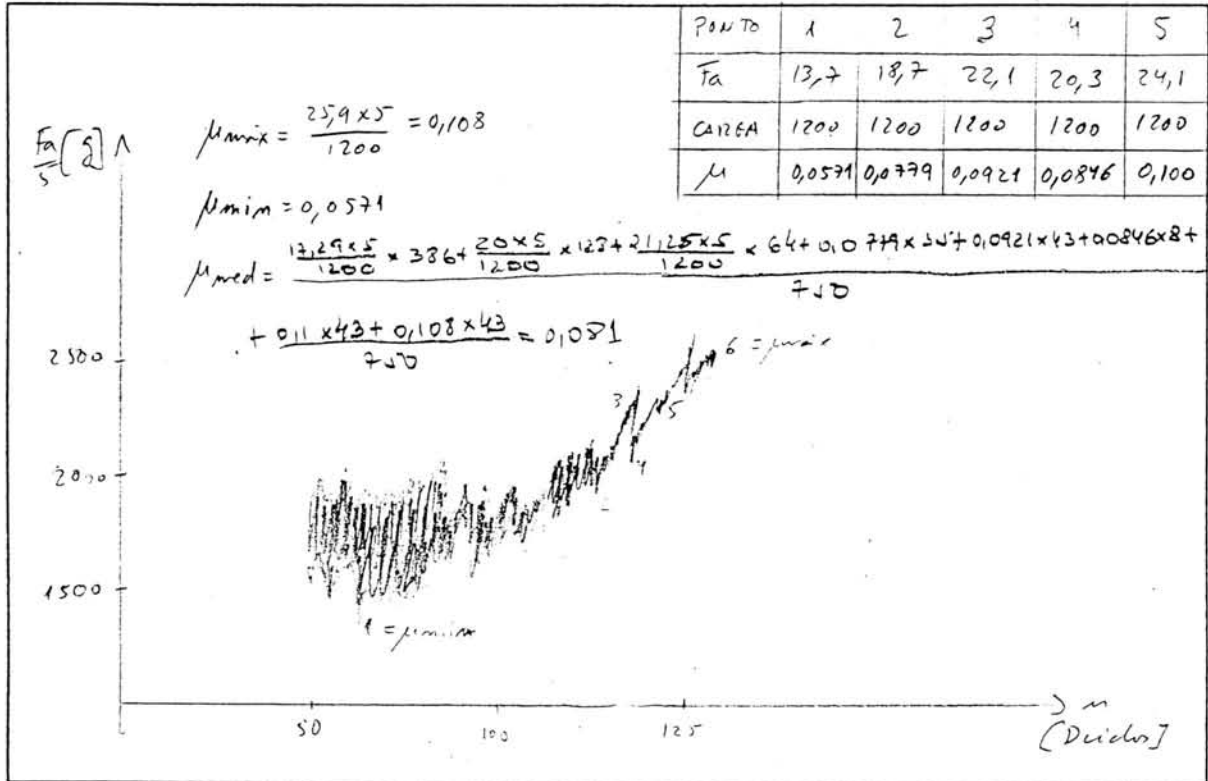 PONTO 1 2 3 4 5
Fa 13,7 18,7 22,1 20,3 24,1
CARGA 1200 1200 1200 1200 1200
μ 0,0571 0,0779 0,0921 0,0846 0,100
Fa/5 [g]
μmáx = 25,9 x 5 / 1200 = 0,108
μmin = 0,0571
μmed = 17,29 x 5 / 1200 x 386 + 20 x 5 / 1200 x 128 + 21,25 x 5 / 1200 x 64 + 0,0779 x 35 + 0,0921 x 43 + 0,0846 x 8 +
750
+ 0,1 x 43 + 0,108 x 43 / 750 = 0,081
2500
6 = μmáx
3
5
2000
4
1500
1 = μmin
50 100 125
n